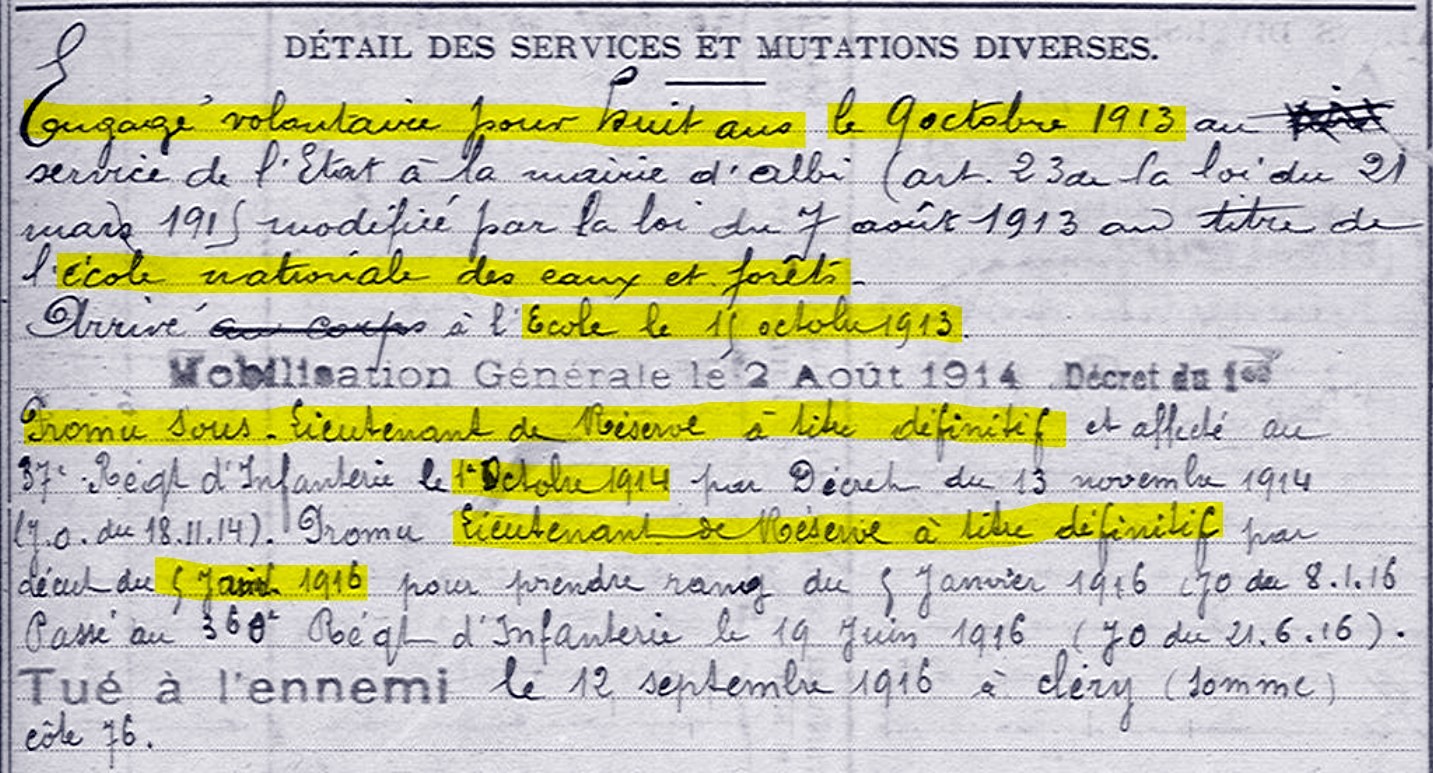 DÉTAIL DES SERVICES ET MUTATIONS DIVERSES.
Engagé volontaire pour huit ans le 9 octobre 1913 au
service de l'Etat à la mairie d'albi (art. 23 de la loi du 21
mars 1915 modifiée par la loi du 7 août 1913 au titre de
l'école nationale des eaux et forêts.
Arrivé au corps à l'Ecole le 15 octobre 1913.
Mobilisation Générale le 2 Août 1914 Décret du 1er
Promu Sous-Lieutenant de Réserve à titre définitif et affecté au
37e Régt d'Infanterie le 1er Octobre 1914 par Décret du 13 novembre 1914
(J.O. du 18.11.14). Promu Lieutenant de Réserve à titre définitif par
décret du 5 1916 pour prendre rang du 5 Janvier 1916 (JO du 8.1.16
Passé au 360e Régt d'Infanterie le 19 Juin 1916 (JO du 21.6.16).
Tué à l'ennemi le 12 septembre 1916 à cléry (Somme)
côte 76.